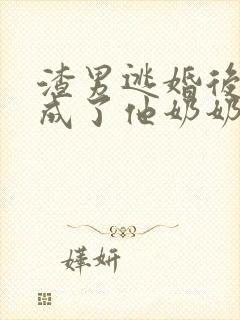 渣男逃婚後
成了他奶奶
嬅妍